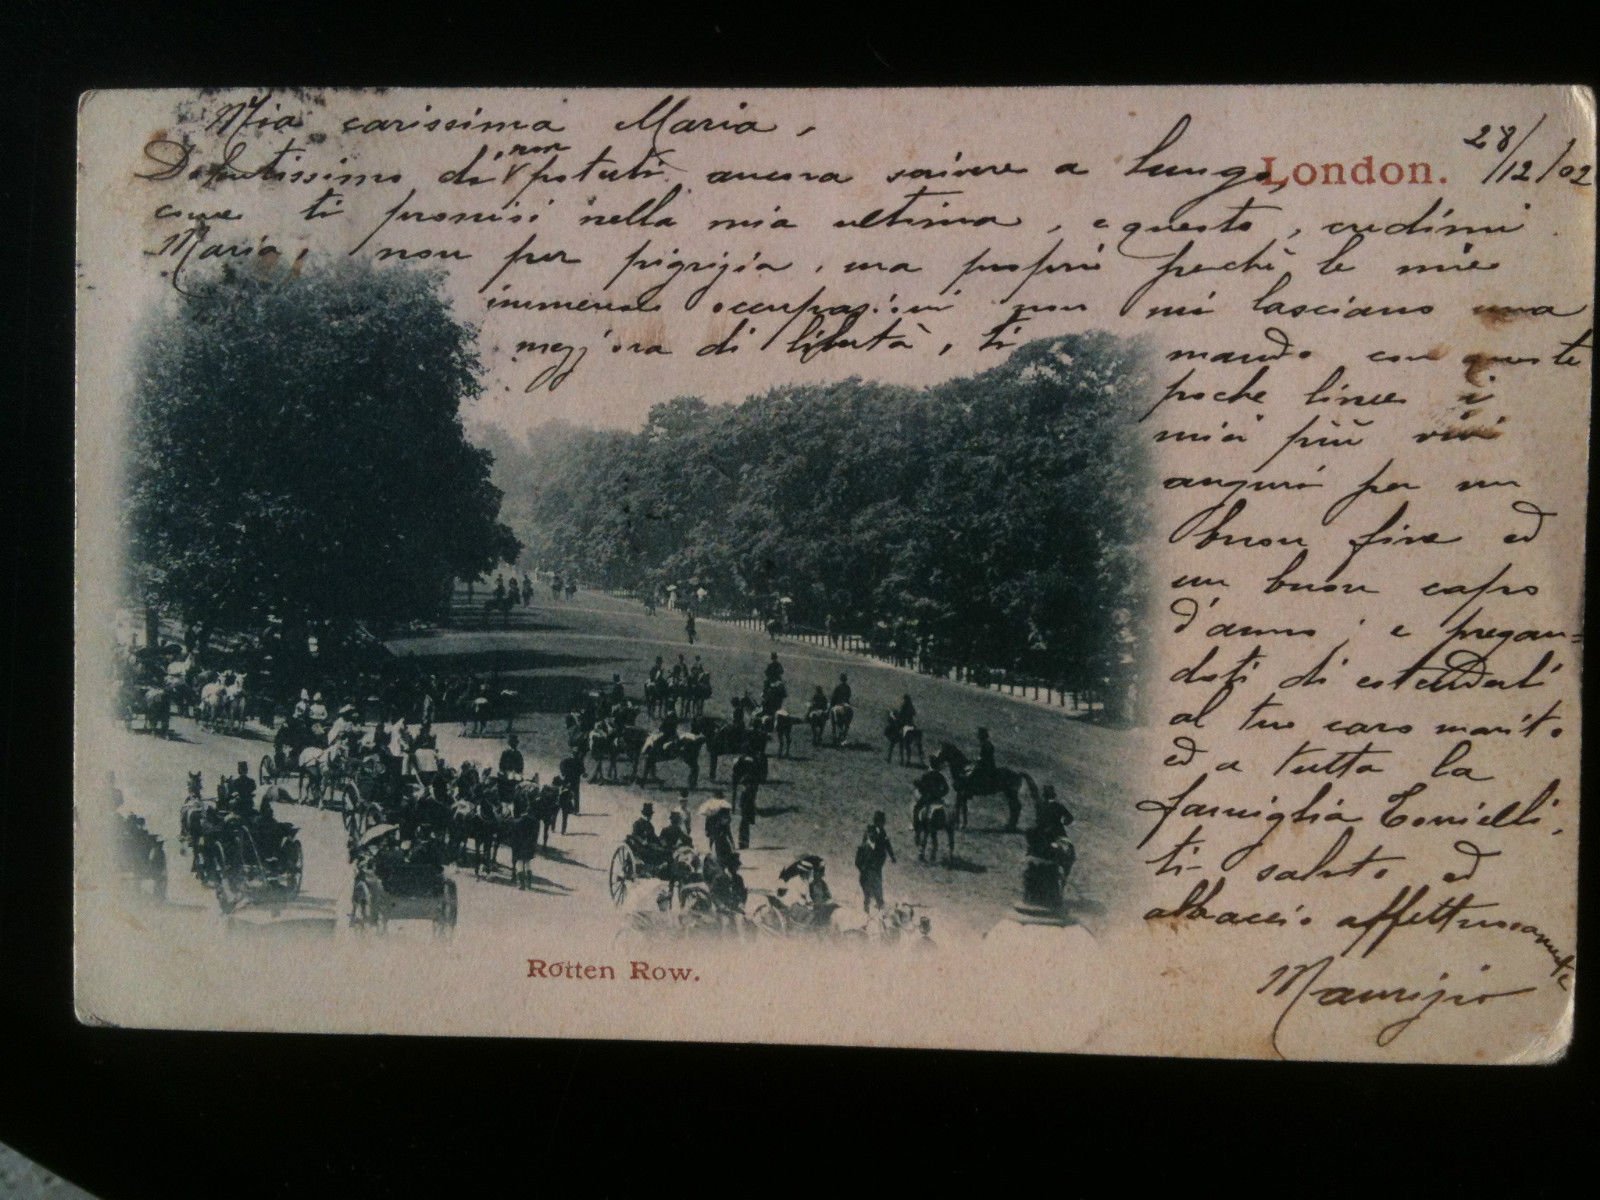 Mia carissima Maria,
London. 28/12/02
di non potuti ancora scrivere a lungo,
come ti promisi nella mia ultima, e questo, credimi
Maria, non per pigrizia, ma proprio perchè le mie
immense occupazioni non mi lasciano una
mezz'ora di libertà, ti mando con queste
poche linee i
miei più vivi
auguri per un
buon fine ed
un buon capo
d'anno; e pregan=
doti di estenderli
al tuo caro marito
ed a tutta la
famiglia
ti saluto ed
abbraccio affettuosamente
Maurizio
Rotten Row.